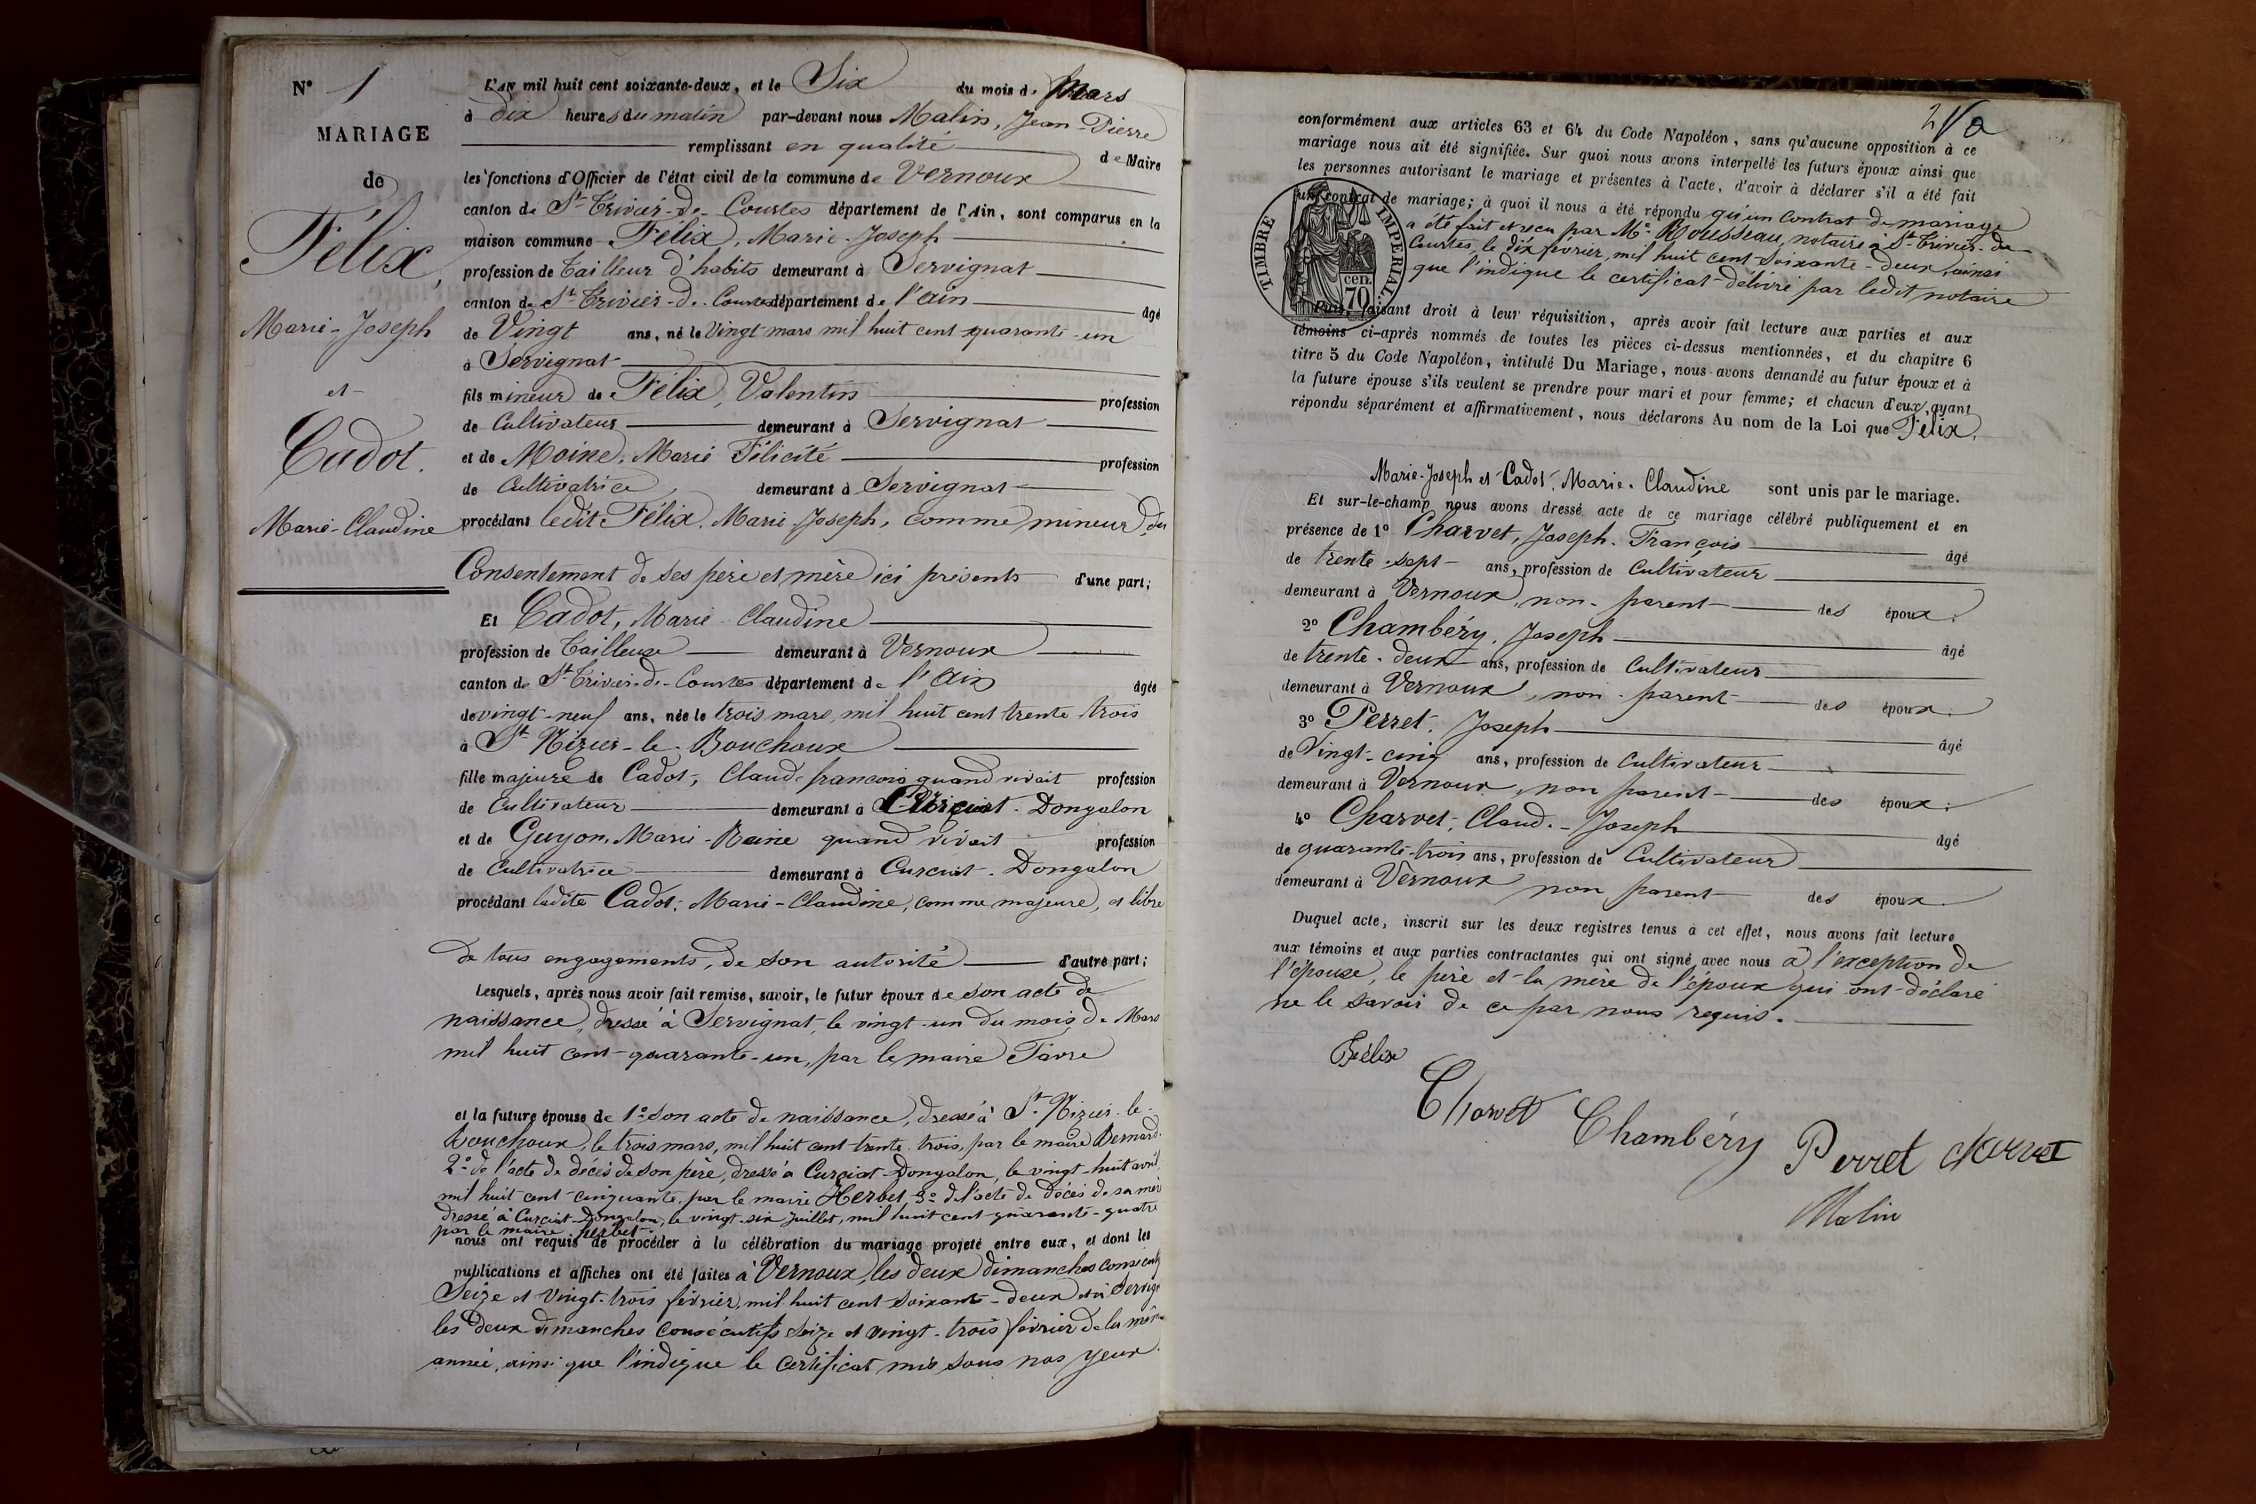 N° 1
MARIAGE
de
Félix,
Marie-Joseph
et
Cadot.
Marie-Claudine
L'AN mil huit cent soixante-deux, et le Six du mois de Mars
à dix heures du matin par-devant nous Malin, Jean-Pierre
remplissant en qualité de Maire
les fonctions d'Officier de l'état civil de la commune de Vernoux
canton de St Trivier-de-Courtes département de l'Ain, sont comparus en la
maison commune Félix, Marie-Joseph
profession de Tailleur d'habits demeurant à Servignat
canton de St Trivier-de-Courtes département de l'ain âgé
de Vingt ans, né le Vingt mars mil huit cent quarante-un
à Servignat
fils mineur de Félix, Valentin profession
de Cultivateur demeurant à Servignat
et de Moine, Marie Félicité profession
de Cultivatrice demeurant à Servignat
procédant ledit Félix, Marie Joseph, comme mineur, du
Consentement de ses père et mère ici présents d'une part;
Et Cadot, Marie Claudine
profession de Tailleuse demeurant à Vernoux
canton de St Trivier-de-Courtes département de l'Ain âgée
de vingt-neuf ans, née le trois mars, mil huit cent trente trois
à St Nizier-le-Bouchoux
fille majeure de Cadot, Claude francois quand vivait profession
de Cultivateur demeurant à Curciat-Dongalon
et de Guyon, Marie-Reine quand vivait profession
de Cultivatrice demeurant à Curciat-Dongalon
procédant ladite Cadot, Marie-Claudine, comme majeure, et libre
de tous engagements, de son autorité d'autre part;
Lesquels, après nous avoir fait remise, savoir, le futur époux de son acte de
naissance, dressé à Servignat, le vingt-un du mois de Mars
mil huit cent-quarante-un, par le maire Favre
et la future épouse de 1° son acte de naissance, dressé à St Nizier-le-
bouchoux, le trois mars, mil huit cent trente trois, par le maire Bernard.
2° de l'acte de décès de son père, dressé à Curciat-Dongalon, le vingt-huit avril,
mil huit cent cinquante, par le maire Herbet, 3° de l'acte de décès de sa mère
dressé à Curciat-Dongalon, le vingt-six juillet, mil huit cent-quarante-quatre
par le maire herbet
nous ont requis de procéder à la célébration du mariage projeté entre eux, et dont les
publications et affiches ont été faites à Vernoux, les deux dimanches consécutifs
Seize et Vingt-trois février, mil huit cent soixante-deux et à
les deux dimanches consécutifs seize et vingt-trois février de la même
année, ainsi que l'indique le certificat mis sous nos yeux.
2
conformément aux articles 63 et 64 du Code Napoléon, sans qu'aucune opposition à ce
mariage nous ait été signifiée. Sur quoi nous avons interpellé les futurs époux ainsi que
les personnes autorisant le mariage et présentes à l'acte, d'avoir à déclarer s'il a été fait
un contrat de mariage; à quoi il nous a été répondu qu'un contrat de mariage
a été fait et reçu par Me Rousseau, notaire à St Trivier-de-
Courtes, le dix février, mil huit cent soixante-deux, ainsi
que l'indique le certificat délivré par ledit notaire
TIMBRE IMPERIAL.
70 cen.
Puis, faisant droit à leur réquisition, après avoir fait lecture aux parties et aux
témoins ci-après nommés de toutes les pièces ci-dessus mentionnées, et du chapitre 6
titre 5 du Code Napoléon, intitulé Du Mariage, nous avons demandé au futur époux et à
la future épouse s'ils veulent se prendre pour mari et pour femme; et chacun d'eux, ayant
répondu séparément et affirmativement, nous déclarons Au nom de la Loi que Félix,
Marie-Joseph et Cadot, Marie-Claudine sont unis par le mariage.
Et sur-le-champ nous avons dressé acte de ce mariage célébré publiquement et en
présence de 1° Charvet, Joseph-François âgé
de trente-sept ans, profession de Cultivateur
demeurant à Vernoux, non-parent des époux.
2° Chambéry, Joseph âgé
de trente-deux ans, profession de Cultivateur
demeurant à Vernoux, non-parent des époux.
3° Perret, Joseph âgé
de Vingt-cinq ans, profession de Cultivateur
demeurant à Vernoux, non parent des époux.
4° Charvet, Claude-Joseph âgé
de quarante-trois ans, profession de Cultivateur
demeurant à Vernoux non parent des époux.
Duquel acte, inscrit sur les deux registres tenus à cet effet, nous avons fait lecture
aux témoins et aux parties contractantes qui ont signé avec nous à l'exception de
l'épouse, le père et la mère de l'époux qui ont déclaré
ne le savoir de ce par nous requis.
Félix
Charvet Chambéry Perret charvet
Malin